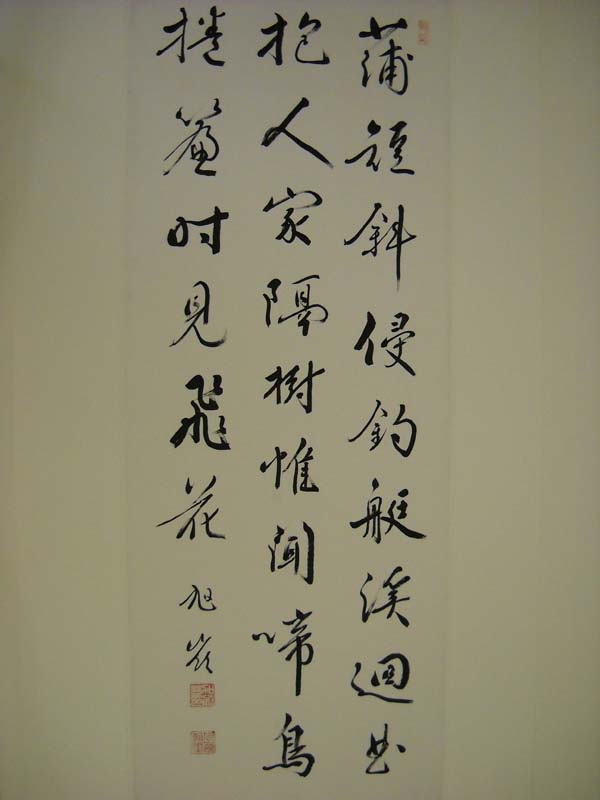 蒲短斜侵釣艇溪迴曲
抱人家隔樹惟聞啼鳥
捲簾时見飛花
旭